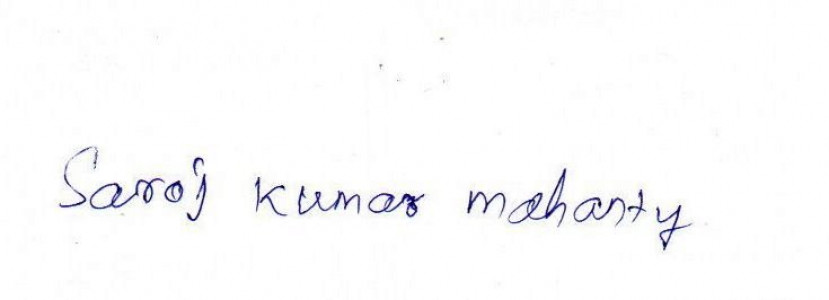 Saroj kumar mohanty